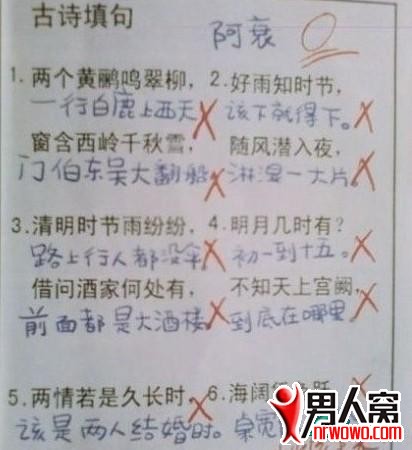 古诗填句
阿衰
0
1.两个黄鹂鸣翠柳，
一行白鹿上西天
窗含西岭千秋雪，
门伯东吴大翻船
2.好雨知时节，
该下就得下。
随风潜入夜，
淋湿一大片。
3.清明时节雨纷纷，
路上行人都没伞
借问酒家何处有，
前面都是大酒楼
4.明月几时有？
初一到十五。
不知天上宫阙，
到底在哪里
5.两情若是久长时
该是两人结婚时。
6.海阔
男人窝
nrwowo.com